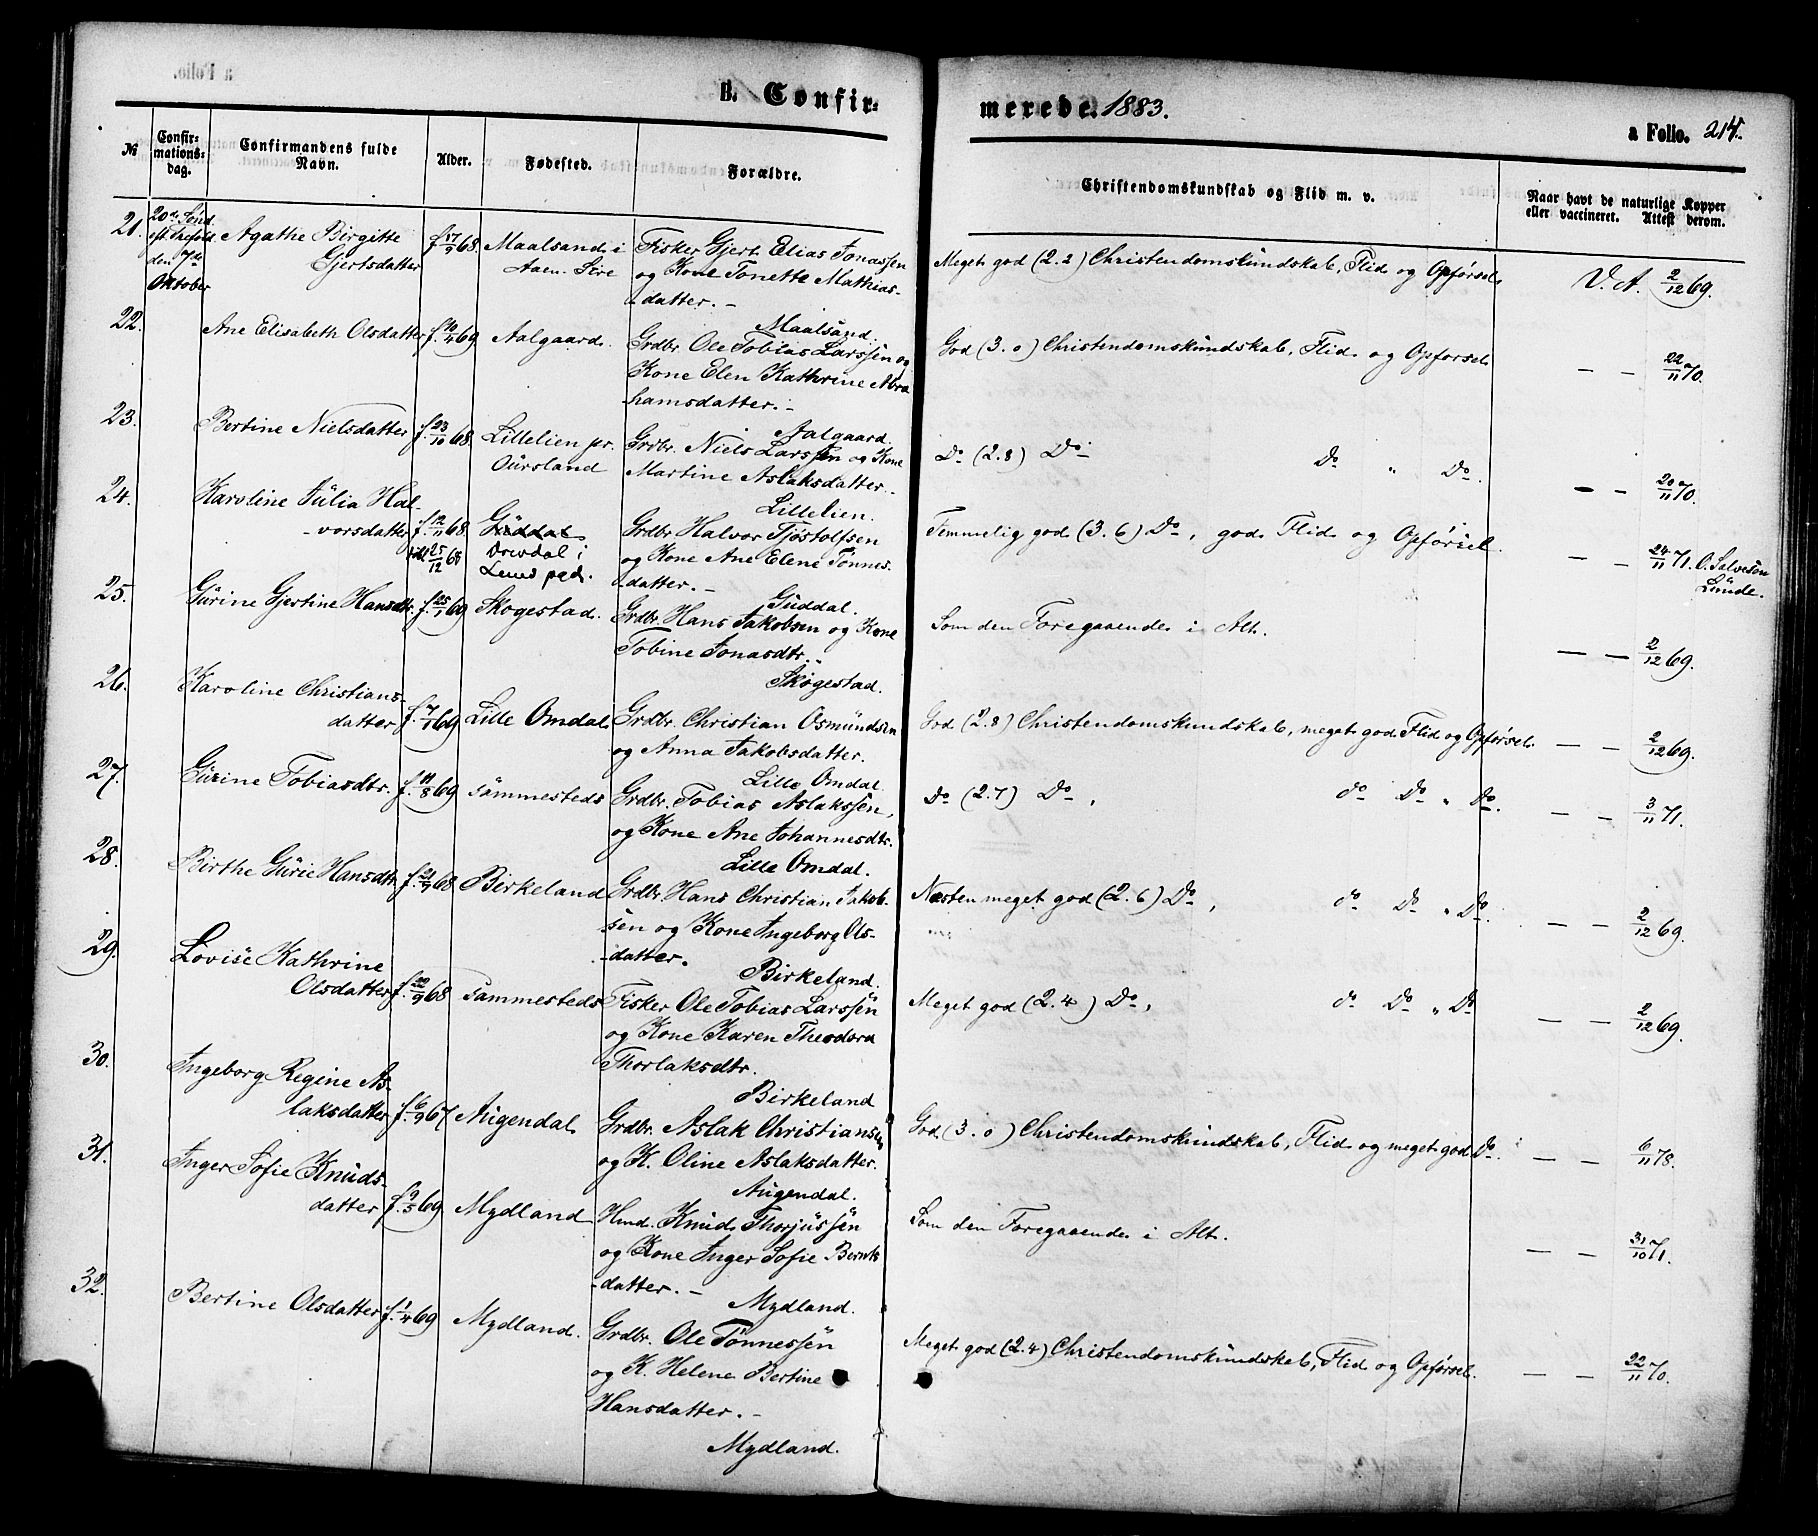 B. Confir-
merede. 1883.
a Folio. 214.
№
Confir-
mations-
dag.
Confirmandens fulde
Navn.
Alder.
Fødested.
Forældre.
Christendomskundskab og Flid m. v.
Naar havt de naturlige Kopper
eller vaccineret. Attest derom.
21. 20de Sønd.
eft. Trefold.
den 7de
Oktober
Agathe Birgitte
Gjertsdatter
f. 17/9 68.
Maalsand i
Aaen. Sire
Fisker Gjert Elias Jonassen
og Kone Tonette Mathias-
datter. -
Maalsand.
Meget god (2.2) Christendomskundskab, Flid og Opførsel
V. A. 2/12 69.
22. Ane Elisabeth Olsdatter f. 10/4 69 Aalgaard.
Grdbr. Ole Tobias Larssen og
Kone Elen Kathrine Abra
hamsdatter. -
Aalgaard.
God (3.0) Christendomskundskab, Flid og Opførsel
— — 22/11 70.
23. Bertine Nielsdatter f. 23/10 68.
Lillelien pr.
Oursland
Grdbr. Niels Larssen og Kone
Martine Aslaksdatter. -
Lillelien.
Do (2.8) Do Do " Do.
— — 20/11 70.
24. Karoline Julia Hal-
-vorsdatter
f. 12/11 68.
25/12 68
Guddal
Drevdal i
Lund
Grdbr. Halvor Tjøstolfsen
og Kone Ane Elene Tønnes-
datter. -
Guddal.
Temmelig god (3.6) Do, god Flid og Opførsel.
— — 24/11 71. O. Salvesen
Lunde.
25. Gurine Gjertine Hansdtr. f. 25/1 69 Skogestad.
Grdbr. Hans Jakobsen og Kone
Tobine Jonasdtr.
Skogestad.
Som den Foregaaende i Alt.
— — 2/12 69.
26. Karoline Christians-
datter f. 7/1 69 Lille Omdal
Grdbr. Christian Osmundsen
og Anna Jakobsdatter.
Lille Omdal
God (2.8) Christendomskundskab, meget god Flid og Opførsel.
— — 2/12 69.
27. Gurine Tobiasdtr. f. 11/8 69 sammesteds
Grdbr. Tobias Aslakssen,
og Kone Ane Johannesdtr.
Lille Omdal.
Do (2.7) Do, do Do " Do.
— — 3/11 71.
28. Birthe Gurie Hansdtr f. 21/9 68 Birkeland
Grdbr. Hans Christian Jakob-
sen og Kone Ingeborg Ols-
-datter.
Birkeland.
Næsten meget god (2.6) Do, do Do " Do.
— — 2/12 69.
29. Lovise Kathrine
Olsdatter f. 20/9 68 sammesteds
Fisker Ole Tobias Larssen
og Kone Karen Theodora
Thorlaksdtr.
Birkeland
Meget god (2.4) Do, do Do " Do
— — 2/12 69.
30. Ingeborg Regine As-
laksdatter f. 6/9 67 Augendal
Grdbr. Aslak Christiansen
og K. Oline Aslaksdatter.
Augendal.
God (3.0) Christendomskundskab, Flid og meget god Do.
— — 6/11 78.
31. Inger Sofie Knuds-
datter f. 9/5 69 Mydland
Hmd. Knud Thorjussen
og Kone Inger Sofie Bernts
-datter. -
Mydland.
Som den Foregaaende i Alt.
— — 31/10 71.
32. Bertine Olsdatter f. 1/4 69 Mydland.
Grdbr. Ole Tønnessen
og K. Helene Bertine
Hansdatter. -
Mydland.
Meget god (2.4) Christendomskundskab, Flid og Opførsel.
— — 22/11 70.